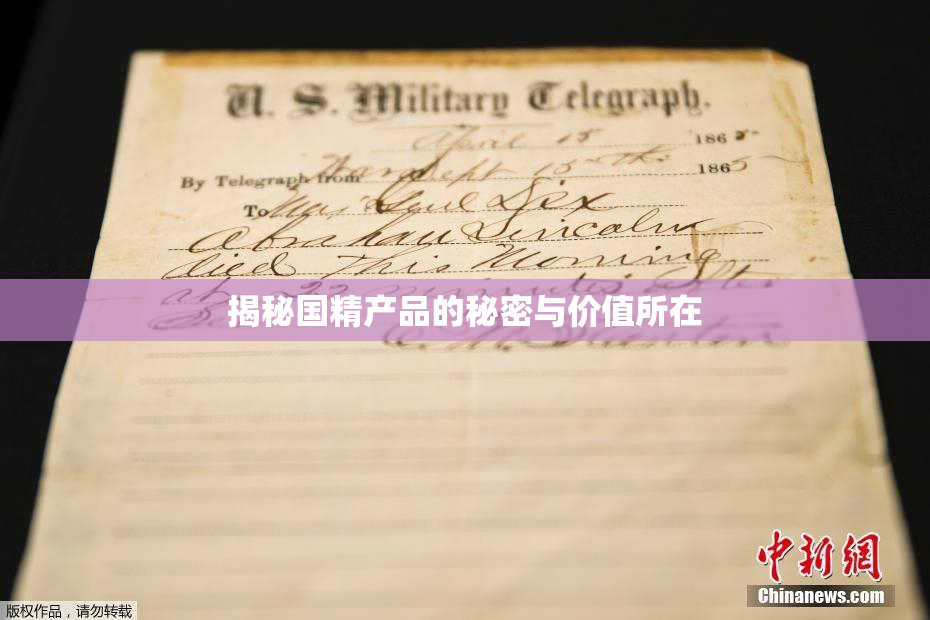 U. S. Military Telegraph.
April 15 1865
By Telegraph from War Dept 15th 1865
To Maj Genl Dix
Abraham Lincoln
died This Morning
at 22 minutes after
揭秘国精产品的秘密与价值所在
E. M. Stanton
中新网
Chinanews.com
版权作品，请勿转载